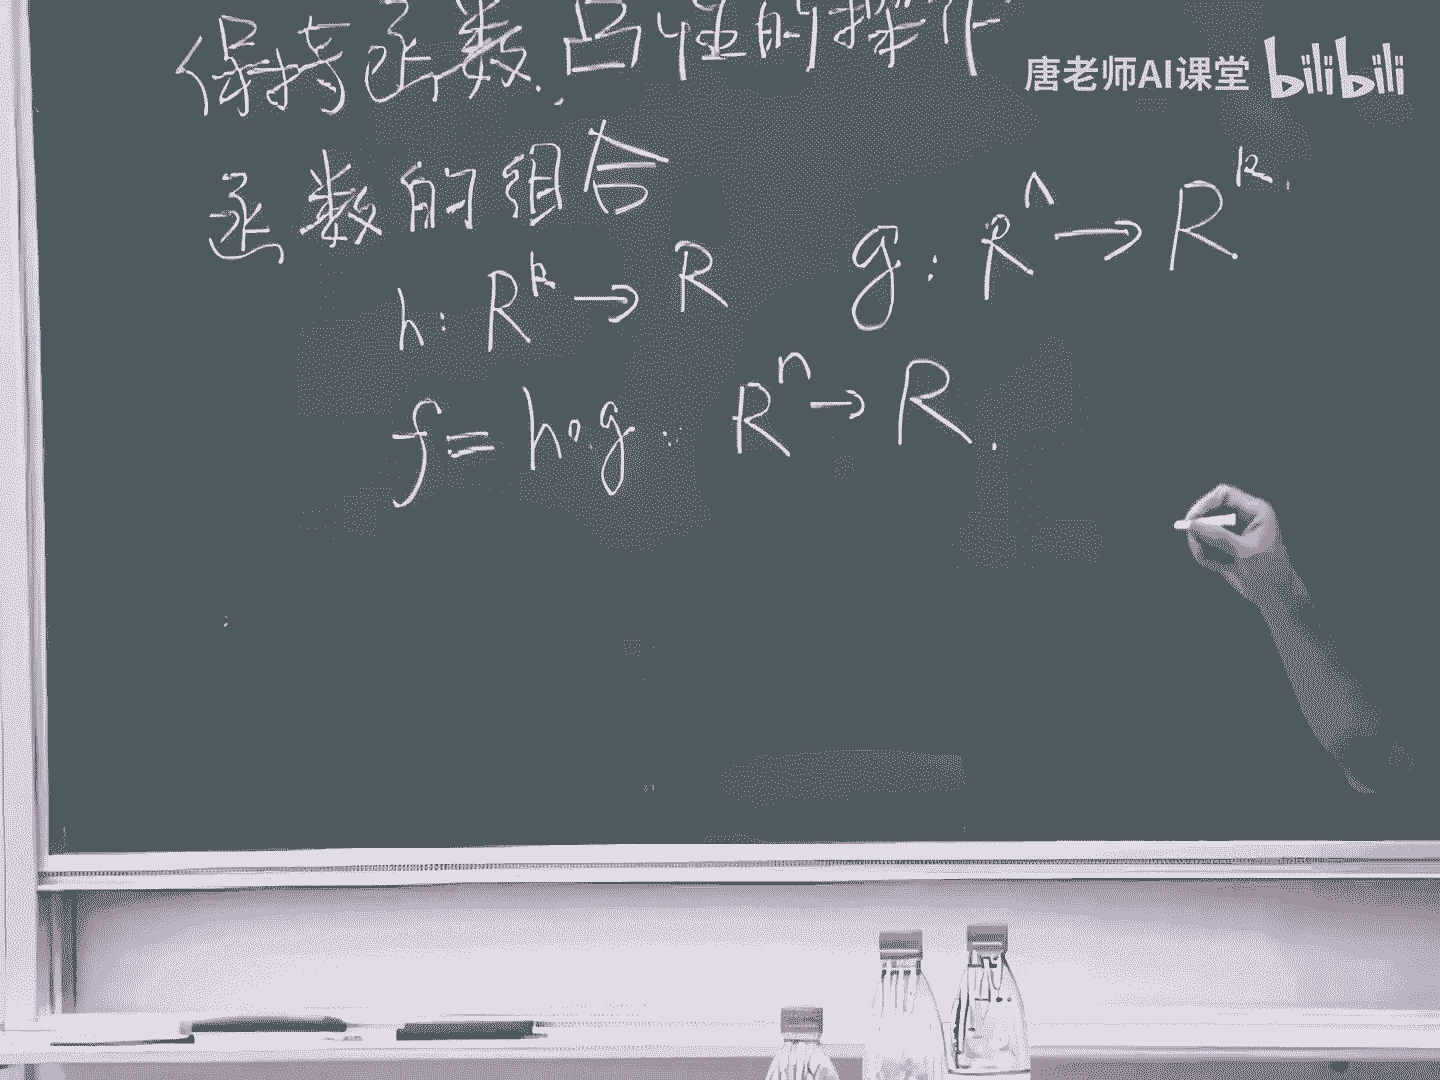 保持函数凸性的操作
唐老师AI课堂 bilibili
函数的组合
h: R^k → R g: R^n → R^k.
f = h∘g: R^n → R.